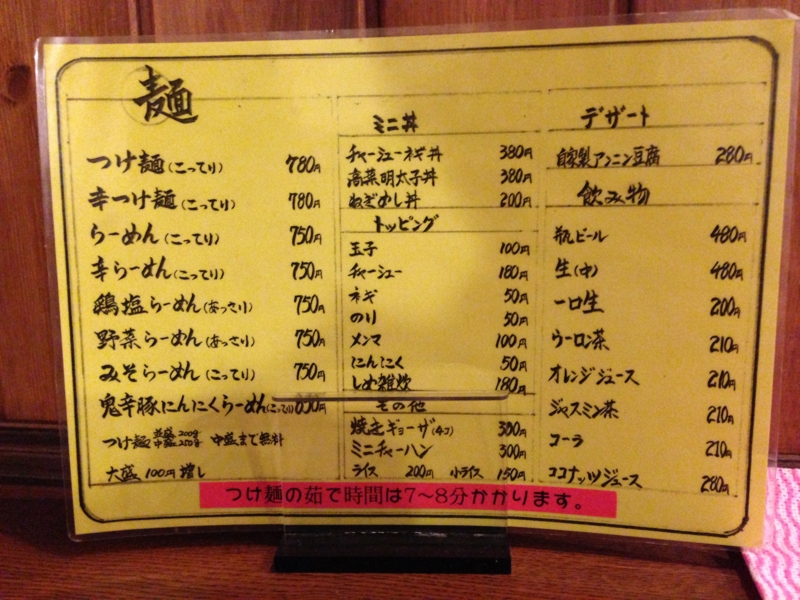 麺
つけ麺(こってり) 780円
辛つけ麺(こってり) 780円
らーめん(こってり) 750円
辛らーめん(こってり) 750円
鶏塩らーめん(あっさり) 750円
野菜らーめん(あっさり) 750円
みそらーめん(こってり) 750円
鬼辛豚にんにくらーめん(こってり) 850円
つけ麺 並盛200g 中盛250g 中盛まで無料
大盛 100円増し
ミニ丼
チャーシューネギ丼 380円
高菜明太子丼 380円
ねぎめし丼 200円
トッピング
玉子 100円
チャーシュー 180円
ネギ 50円
のり 50円
メンマ 100円
にんにく 50円
しめ雑炊 180円
その他
焼きギョーザ(4コ) 300円
ミニチャーハン 300円
ライス 200円 小ライス 150円
デザート
自家製アンニン豆腐 280円
飲み物
瓶ビール 480円
生(中) 480円
一口生 200円
ウーロン茶 210円
オレンジジュース 210円
ジャスミン茶 210円
コーラ 210円
ココナッツジュース 280円
つけ麺の茹で時間は7～8分かかります。